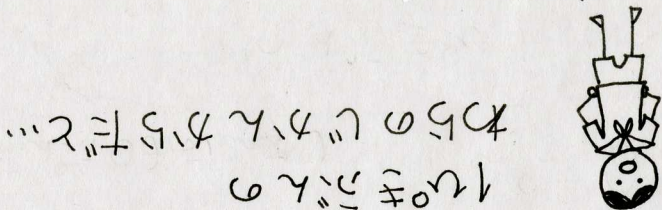 1ぴきぶんの
わらのじかんからだと…